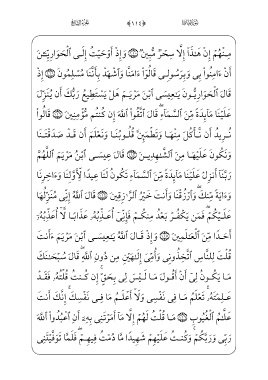 مِنْهُمْ إِنْ هَـٰذَآ إِلَّا سِحْرٌ مُّبِينٌ ۝ وَإِذْ أَوْحَيْتُ إِلَى ٱلْحَوَارِيِّـۧنَ
أَنْ ءَامِنُوا۟ بِى وَبِرَسُولِى قَالُوٓا۟ ءَامَنَّا وَٱشْهَدْ بِأَنَّنَا مُسْلِمُونَ ۝ إِذْ
قَالَ ٱلْحَوَارِيُّونَ يَـٰعِيسَى ٱبْنَ مَرْيَمَ هَلْ يَسْتَطِيعُ رَبُّكَ أَن يُنَزِّلَ
عَلَيْنَا مَآئِدَةً مِّنَ ٱلسَّمَآءِ ۖ قَالَ ٱتَّقُوا۟ ٱللَّهَ إِن كُنتُم مُّؤْمِنِينَ ۝ قَالُوا۟
نُرِيدُ أَن نَّأْكُلَ مِنْهَا وَتَطْمَئِنَّ قُلُوبُنَا وَنَعْلَمَ أَن قَدْ صَدَقْتَنَا
وَنَكُونَ عَلَيْهَا مِنَ ٱلشَّـٰهِدِينَ ۝ قَالَ عِيسَى ٱبْنُ مَرْيَمَ ٱللَّهُمَّ
رَبَّنَآ أَنزِلْ عَلَيْنَا مَآئِدَةً مِّنَ ٱلسَّمَآءِ تَكُونُ لَنَا عِيدًا لِّأَوَّلِنَا وَءَاخِرِنَا
وَءَايَةً مِّنكَ ۖ وَٱرْزُقْنَا وَأَنتَ خَيْرُ ٱلرَّٰزِقِينَ ۝ قَالَ ٱللَّهُ إِنِّى مُنَزِّلُهَا
عَلَيْكُمْ ۖ فَمَن يَكْفُرْ بَعْدُ مِنكُمْ فَإِنِّىٓ أُعَذِّبُهُۥ عَذَابًا لَّآ أُعَذِّبُهُۥٓ
أَحَدًا مِّنَ ٱلْعَـٰلَمِينَ ۝ وَإِذْ قَالَ ٱللَّهُ يَـٰعِيسَى ٱبْنَ مَرْيَمَ ءَأَنتَ
قُلْتَ لِلنَّاسِ ٱتَّخِذُونِى وَأُمِّىَ إِلَـٰهَيْنِ مِن دُونِ ٱللَّهِ ۖ قَالَ سُبْحَـٰنَكَ
مَا يَكُونُ لِىٓ أَنْ أَقُولَ مَا لَيْسَ لِى بِحَقٍّ ۚ إِن كُنتُ قُلْتُهُۥ فَقَدْ
عَلِمْتَهُۥ ۚ تَعْلَمُ مَا فِى نَفْسِى وَلَآ أَعْلَمُ مَا فِى نَفْسِكَ ۚ إِنَّكَ أَنتَ
عَلَّـٰمُ ٱلْغُيُوبِ ۝ مَا قُلْتُ لَهُمْ إِلَّا مَآ أَمَرْتَنِى بِهِۦٓ أَنِ ٱعْبُدُوا۟ ٱللَّهَ
رَبِّى وَرَبَّكُمْ ۚ وَكُنتُ عَلَيْهِمْ شَهِيدًا مَّا دُمْتُ فِيهِمْ ۖ فَلَمَّا تَوَفَّيْتَنِى